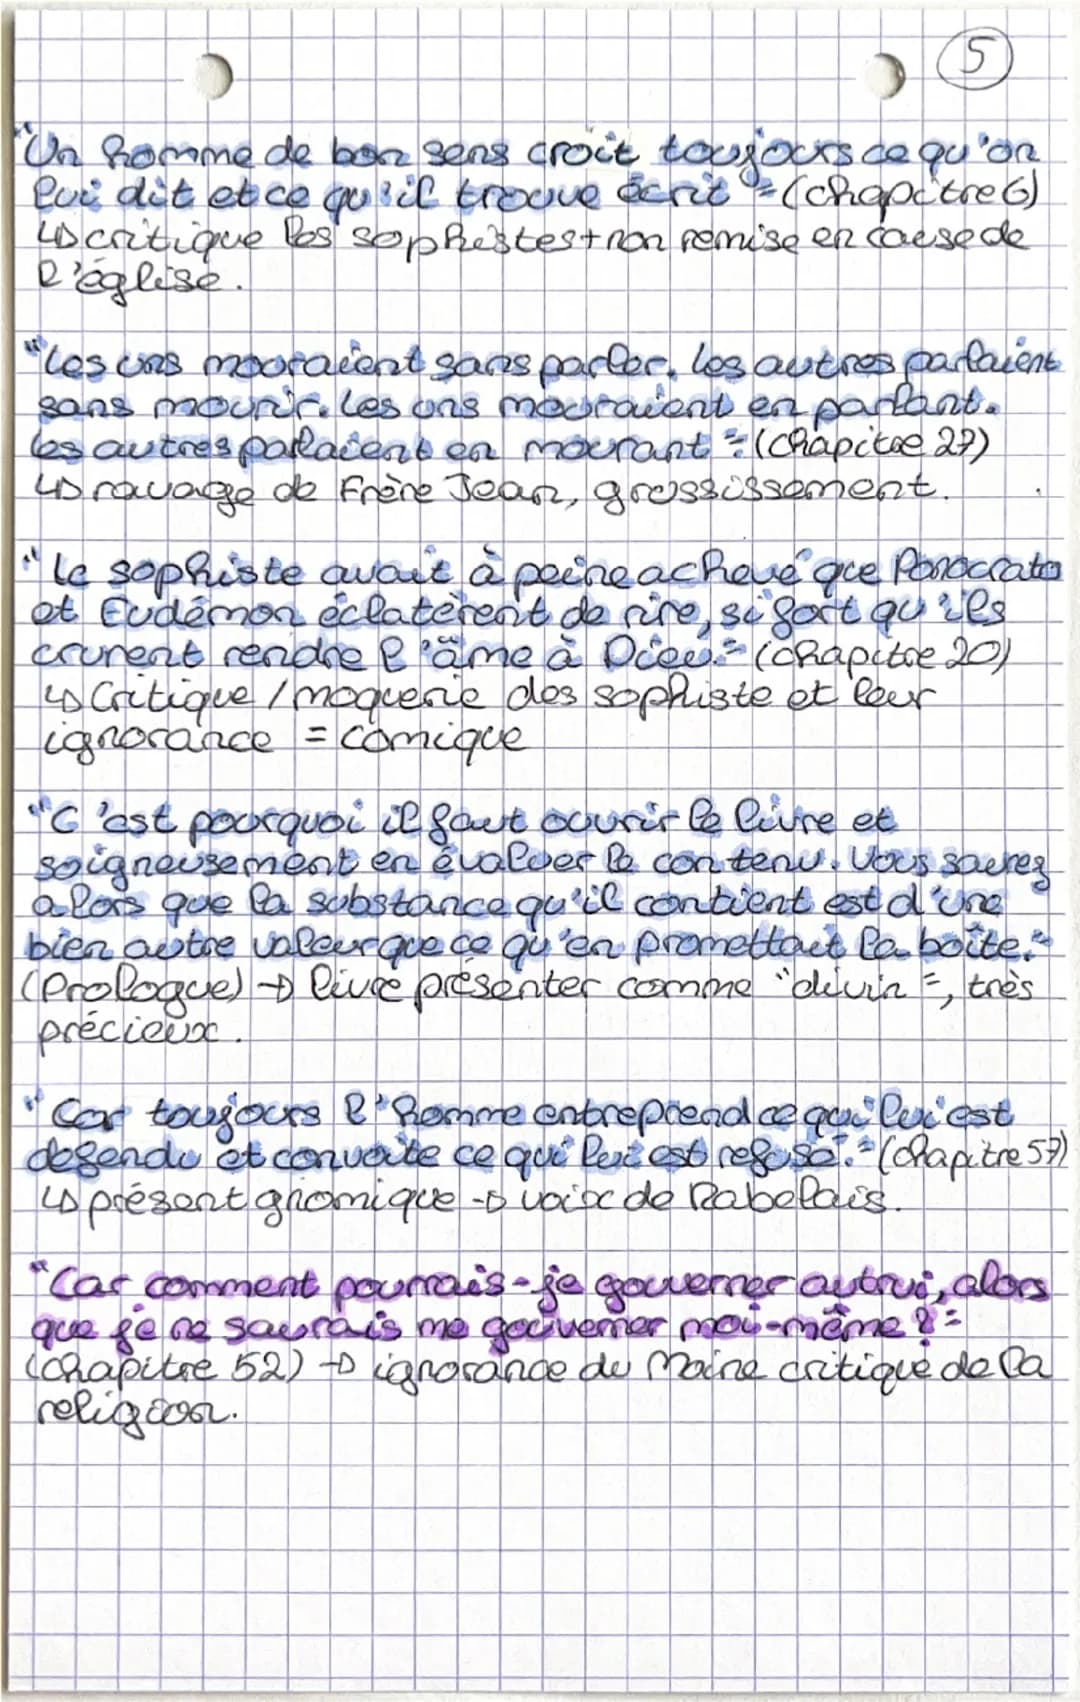 5
"Un homme de bon sens croit toujours ce qu'on
lui dit et ce qu'il trouve écrit" (chapitre 6)
↳ critique les sophistes + non remise en cause de
l'église.
"Les uns mouraient sans parler, les autres parlaient
sans mourir. Les uns mouraient en parlant.
les autres parlaient en mourant" (chapitre 27)
↳ ravage de Frère Jean, grossissement.
"Le sophiste avait à peine achevé que Ponocrate
et Eudémon éclatèrent de rire, si fort qu'ils
crurent rendre l'âme à Dieu." (chapitre 20)
↳ Critique / moquerie des sophiste et leur
ignorance = comique
"C'est pourquoi il faut ouvrir le livre et
soigneusement en évaluer le contenu. Vous saurez
alors que la substance qu'il contient est d'une
bien autre valeur que ce qu'en promettait la boîte."
(Prologue) → livre présenter comme "divin", très
précieux.
"Car toujours l'homme entreprend ce qui lui est
défendu et convoite ce qui lui est refusé." (chapitre 57)
↳ présent gnomique → voix de Rabelais.
"Car comment pourrais-je gouverner autrui, alors
que je ne saurais me gouverner moi-même ?"
(chapitre 52) → ignorance du Moine critique de la
religion.